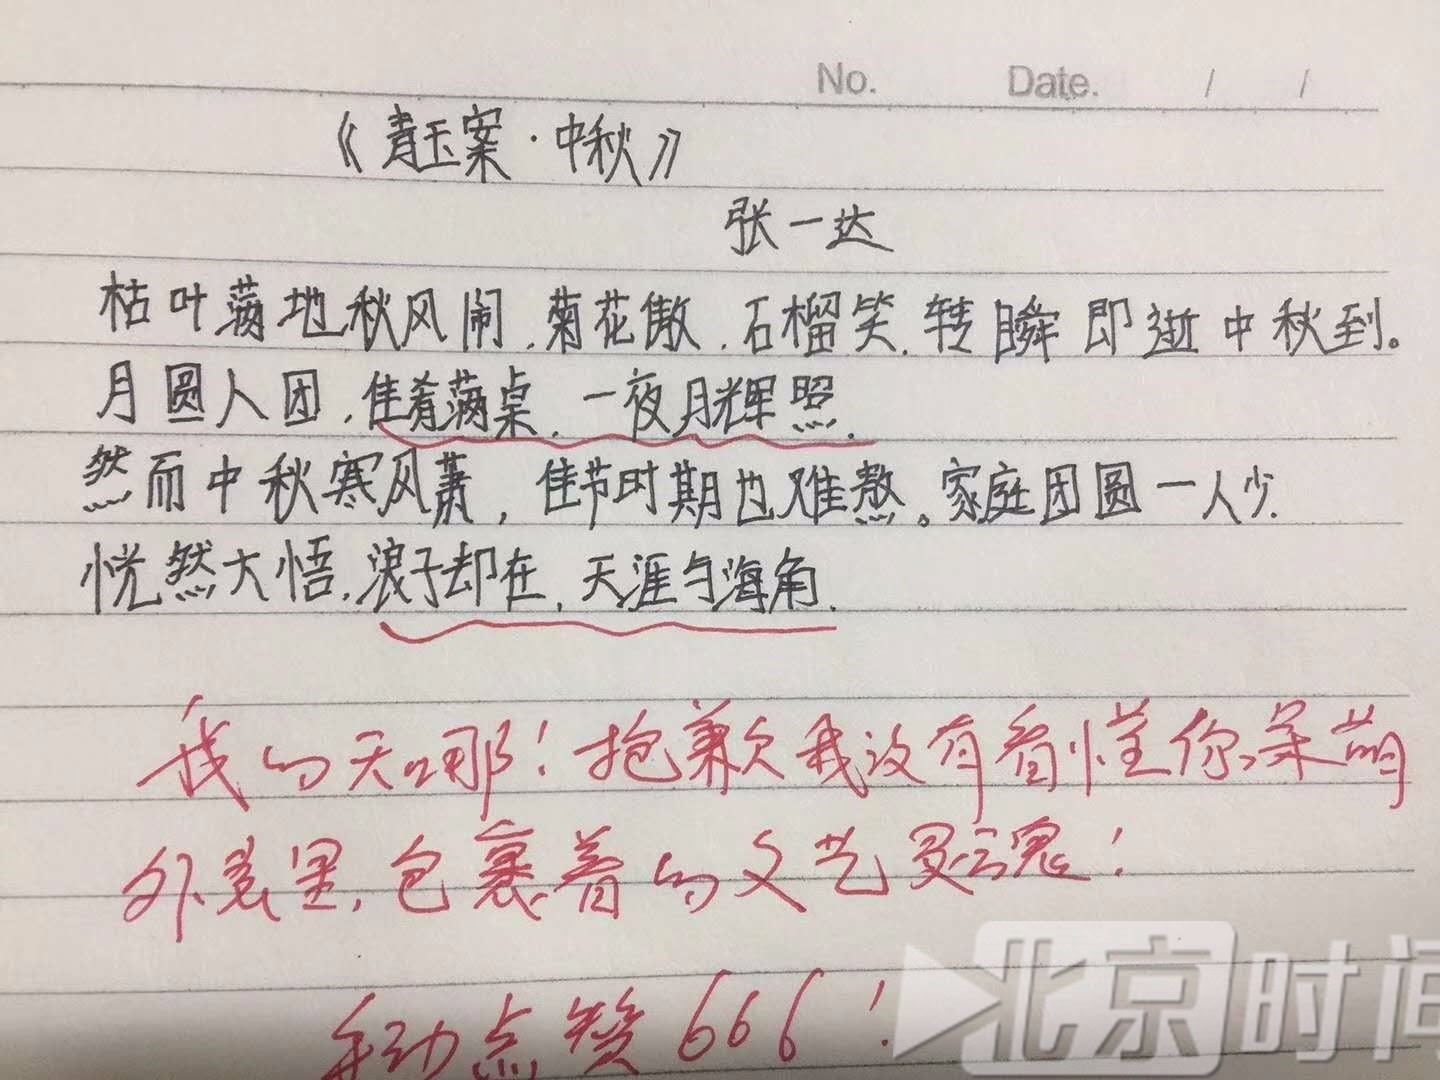 No. Date. / /
《青玉案·中秋》
张一达
枯叶满地秋风闹,菊花傲,石榴笑,转瞬即逝中秋到。
月圆人团,佳肴满桌,一夜月辉照.
然而中秋寒风萧,佳节时期也难熬。家庭团圆一人少.
恍然大悟,浪子却在,天涯与海角.
我的天哪!抱歉我没有看懂你呆萌
外表里,包裹着的文艺灵魂!
手动点赞666!
北京时间